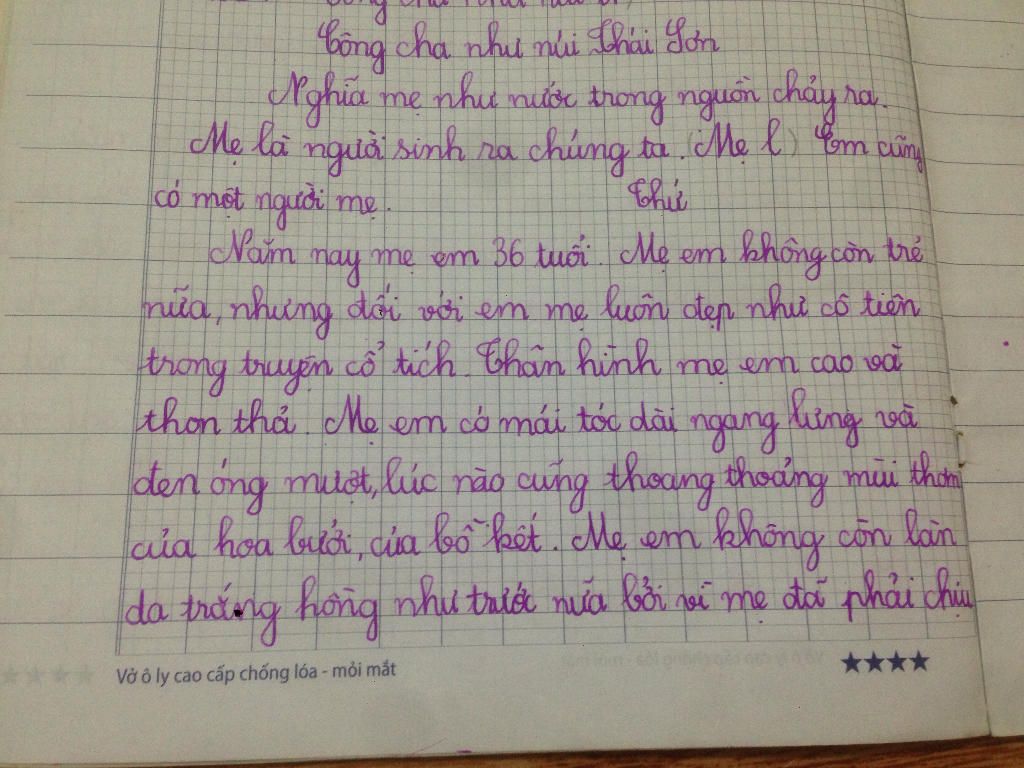 Công cha như núi Thái Sơn
Nghĩa mẹ như nước trong nguồn chảy ra.
Mẹ là người sinh ra chúng ta. (Mẹ l) Em cũng
có một người mẹ. Thứ
Năm nay mẹ em 36 tuổi. Mẹ em không còn trẻ
nữa, nhưng đối với em mẹ luôn đẹp như cô tiên
trong truyện cổ tích. Thân hình mẹ em cao và
thon thả. Mẹ em có mái tóc dài ngang lưng và
đen óng mượt, lúc nào cũng thoang thoảng mùi thơm
của hoa bưởi, của bồ kết. Mẹ em không còn làn
da trắng hồng như trước nữa bởi vì mẹ đã phải chịu
Vở ô ly cao cấp chống lóa - mỏi mắt